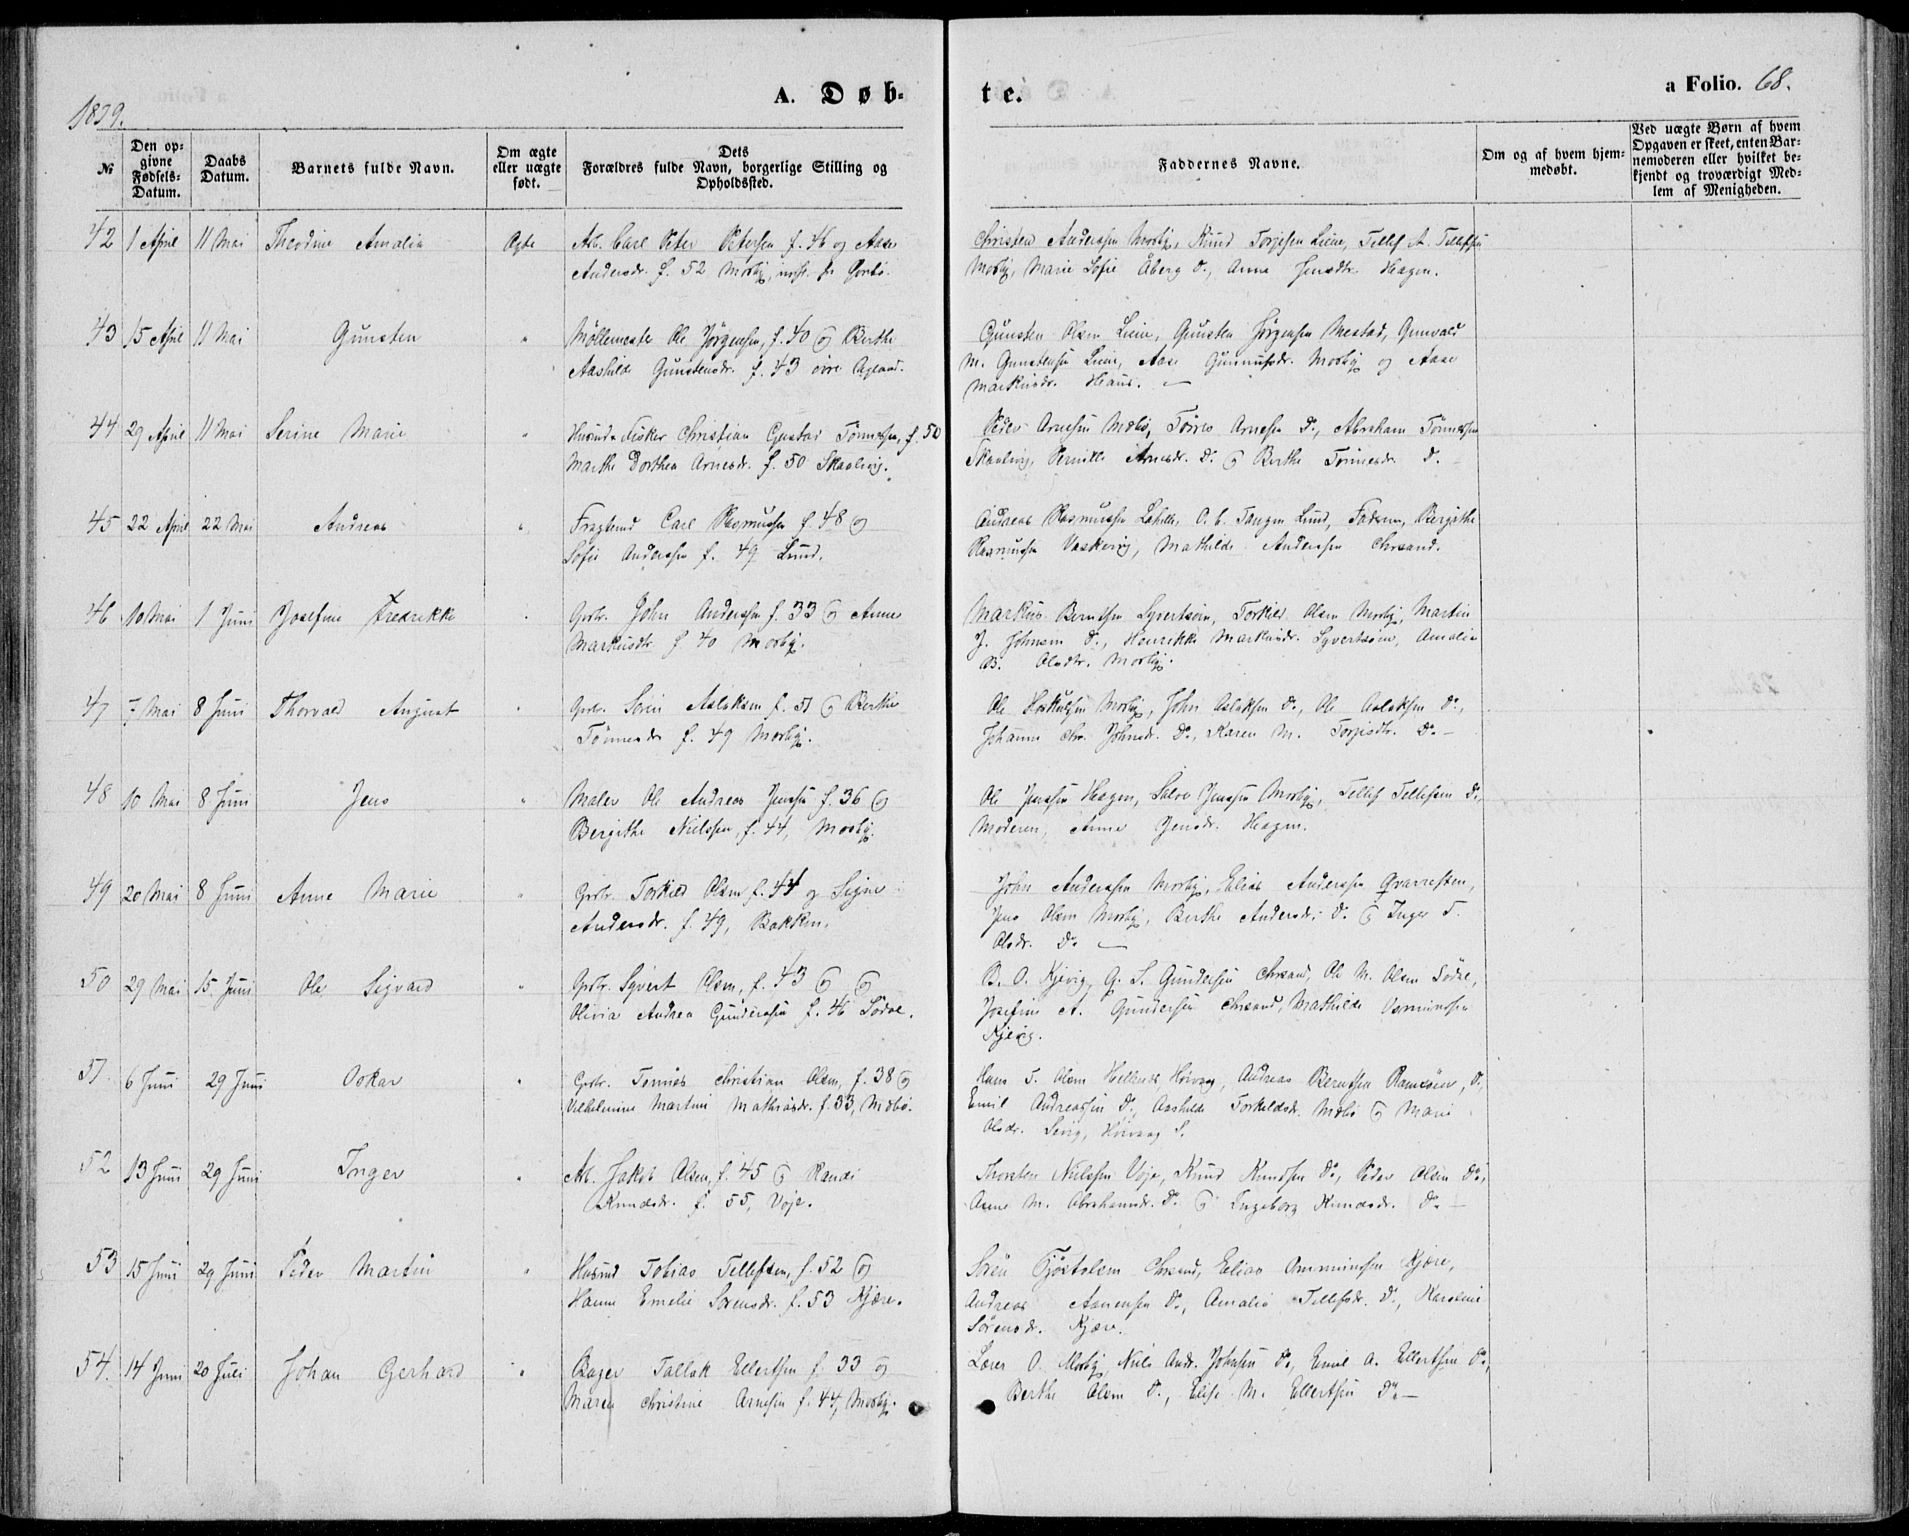 1879.
A. Døb-
te.
a Folio. 68.
№
Den op-
givne
Fødsels-
Datum.
Daabs
Datum.
Barnets fulde Navn.
Om ægte
eller uægte
født.
Dets
Forældres fulde Navn, borgerlige Stilling og
Opholdssted.
Faddernes Navne.
Om og af hvem hjem-
medøbt.
Ved uægte Børn af hvem
Opgaven er skeet, enten Bar-
nemoderen eller hvilket be-
kjendt og troværdigt Med-
lem af Menigheden.
42 1 April 11 Mai Theodine Amalia Ægte Arb. Carl Peter Petersen f. 46 og Aase
Andersdr. f. 52 Mosby,
Christen Anderssen Mosby, Knud Torjesen Lien, Tellef A. Tellefsen
Mosby, Marie Sofie Åberg Do., Anne Jensdtr. Hagen.
43 15 April 11 Mai Gunsten " Möllemester Ole Jörgensen, f. 40 og Berthe
Aashilde Gunstensdr. f. 43 övre Ageland.
Gunsten Olsen Lien, Gunsten Jörgensen Mestad, Gunvald
M. Gunstensen Lien, Aase Gunnufsdr. Mosby og Aase
Markusdr. Haus. —
44 29 April 11 Mai Serine Marie " Husmd & Fisker Christian Gustav Tönnesen, f. 50
Marthe Dorthea Arnesdr. f. 50 Skaalevig.
Peder Arnesen Mæbö, Törres Arnesen Do., Abraham Tönnessen
Skaalevig, Pernille Arnesdr. Do. og Berthe Tönnesdr. Do.
45 22 April 22 Mai Andreas " Carl Rasmussen f. 48 og
Sofie Anderssen f. 49 Lund.
Andreas Rasmussen O. C. Tangen Lund, Faderen, Bergithe
Rasmussen Vaskevig, Mathilde Anderssen Chrsand.
46 10 Mai 1 Juni Josefine Fredrikke " Gprbr. John Anderssen f. 33 og Anne
Markusdtr f 40 Mosby.
Markus Berntsen Syvertsöen, Torkild Olsen Mosby, Martin
J. Johnsen Do., Henrikke Markusdr. Syvertsöen, Amalia
B. Olsdtr. Mosby.
47 7 Mai 8 Juni Thorvald August " Gprbr. Sören Aslaksen f. 51 og Berthe
Tönnesdr f. 49 Mosby.
Ole Mosby, John Aslaksen Do., Ole Aslaksen Do.,
Johanne Chr. Johnsdr. Do., Karen M. Torjisdtr. Do. —
48 10 Mai 8 Juni Jens " Maler Ole Andreas Jenssen f. 36 og
Bergithe Nielssen, f. 44, Mosby.
Ole Jenssen Hagen, Salve Jenssen Mosby, Tellef Tellefsen Do.,
Moderen, Anne Jensdr. Hagen.
49 20 Mai 8 Juni Anne Marie " Gprbr. Torkild Olsen f. 44 og Signe
Andersdr. f. 49, Bakken.
John Anderssen Mosby, Elias Anderssen Qvarnesten,
Jens Olsen Mosby, Berthe Andersdr. Do. og Inger T.
Olsdr. Do. —
50 29 Mai 15. Juni Ole Sigvard " Gprbr. Syvert Olsen, f. 43 og
Olivia Andrea Gunderssen f. 46 Södal.
B. O. Kjevig, G. S. Gundersen Chrsand, Ole M. Olsen Södal,
Josefine A. Gundersen Chrsand, Mathilde
Kjevig.
51 6 Juni 29 Juni Oskar " Gprbr. Tönnes Christian Olsen, f. 38 og
Vilhelmine Martine Mathisdr. f. 33, Mæbö.
Hans T. Olsen Hövaag, Andreas Berntsen Ramsöen,
Emil Andreassen Do., Aashilde Torkeldsdr. Mæbö og Marie
Olsdr. Hövaag S.
52 13 Juni 29 Juni Inger " Arb. Jakob Olsen, f. 45 og Randi
Knudsdr. f. 55, Voje.
Thorsten Nielssen Voje, Knud Knudsen Do., Peder Olsen Do.,
M. Abrahamsdr. Do. og Ingeborg Knudsdr. Do. —
53 15 Juni 29 Juni Peder Martin " Husmd Tobias Tellefsen, f. 52 og
Hanne Emelie Sörensdr. f. 53 Kjære.
Sören Chrsand, Elias Kjære,
Andreas Do., Amalia Tellefsdr. Do., Karoline
Sörensdr. Kjære.
54. 14 Juni 20 Juli Johan Gerhard " Bager Tallak Ellertsen f. 33 og
Maren Christine Arnesen f. 44, Mosby.
Lærer O. Mosby, Niels Andr. Johnsen Do., Emil A. Ellertsen Do.,
Berthe Olsen Do., Elise M. Ellertsen Do. —